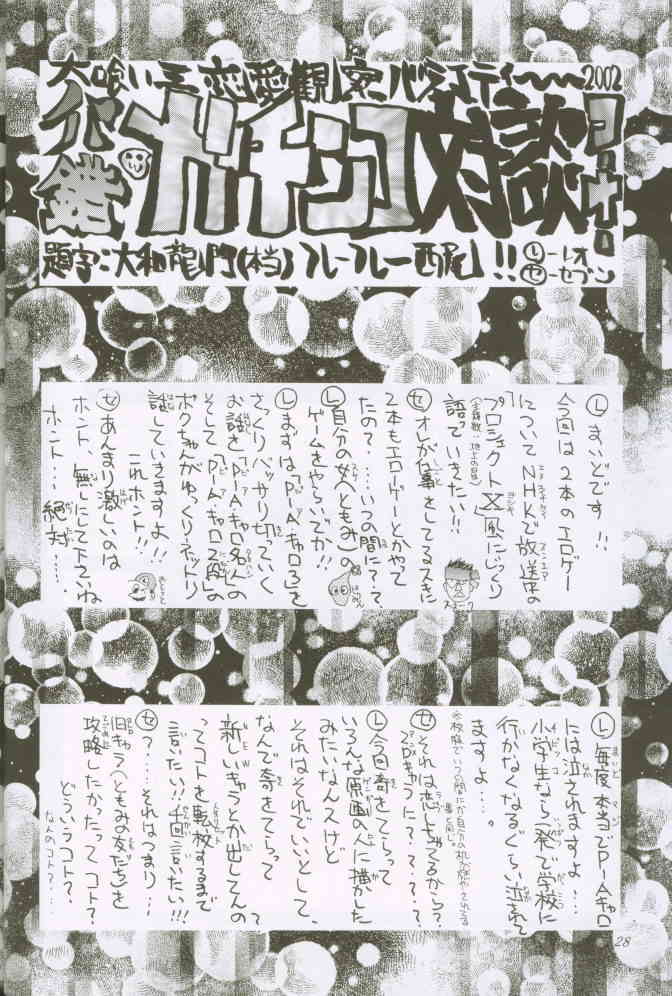 大喰い王恋愛観察バラエティー〜〜2002
ガチンコ対談
コーナー
題字:大和龍門(本当)フレーフレー西尾!!
Ⓛ-レオ
㋝-セブン
Ⓛまいどです!!
今回は2本のエロゲー
についてNHKで放送中の
「プロジェクトX」風にじっくり
語っていきたい!!
㋝オレが仕事をしてるスキに
2本もエロゲーとかやって
たの?....いつの間に??
Ⓛ自分の女(ともみ)の
ゲームをやらいでか!!
Ⓛまずは、「Pia・キャロ3」を
さっくりバッサリ切っていく
お話を「Pia・キャロ名人」の
そして「Pia・キャロ2」の
ボクちゃんがゆっくりネットリ
話していきますよ!!
これホント!!
㋝あんまり激しいのは
ホント、無しにして下さいね
ホント...絶対....
Ⓛ毎度本当でPiAキャロ
には泣されますよ...
小学生なら一発で学校に
行かなくなるぐらい泣されて
ますよ....。
㋝それは恋しちゃってるから?
Ⓛ今回奇をてらって
いろんな原画の人に描かした
みたいなんスけど
それはそれでいいとして、
なんで奇をてらって
新しいキャラとか出してんの?
ってコトを転校するまで
言いたい!!千回言いたい!!!
㋝?....それはつまり...
旧キャラ(ともみの友だち)を
攻略したかったってコト?
どういうコト?
なんのコト?...
28